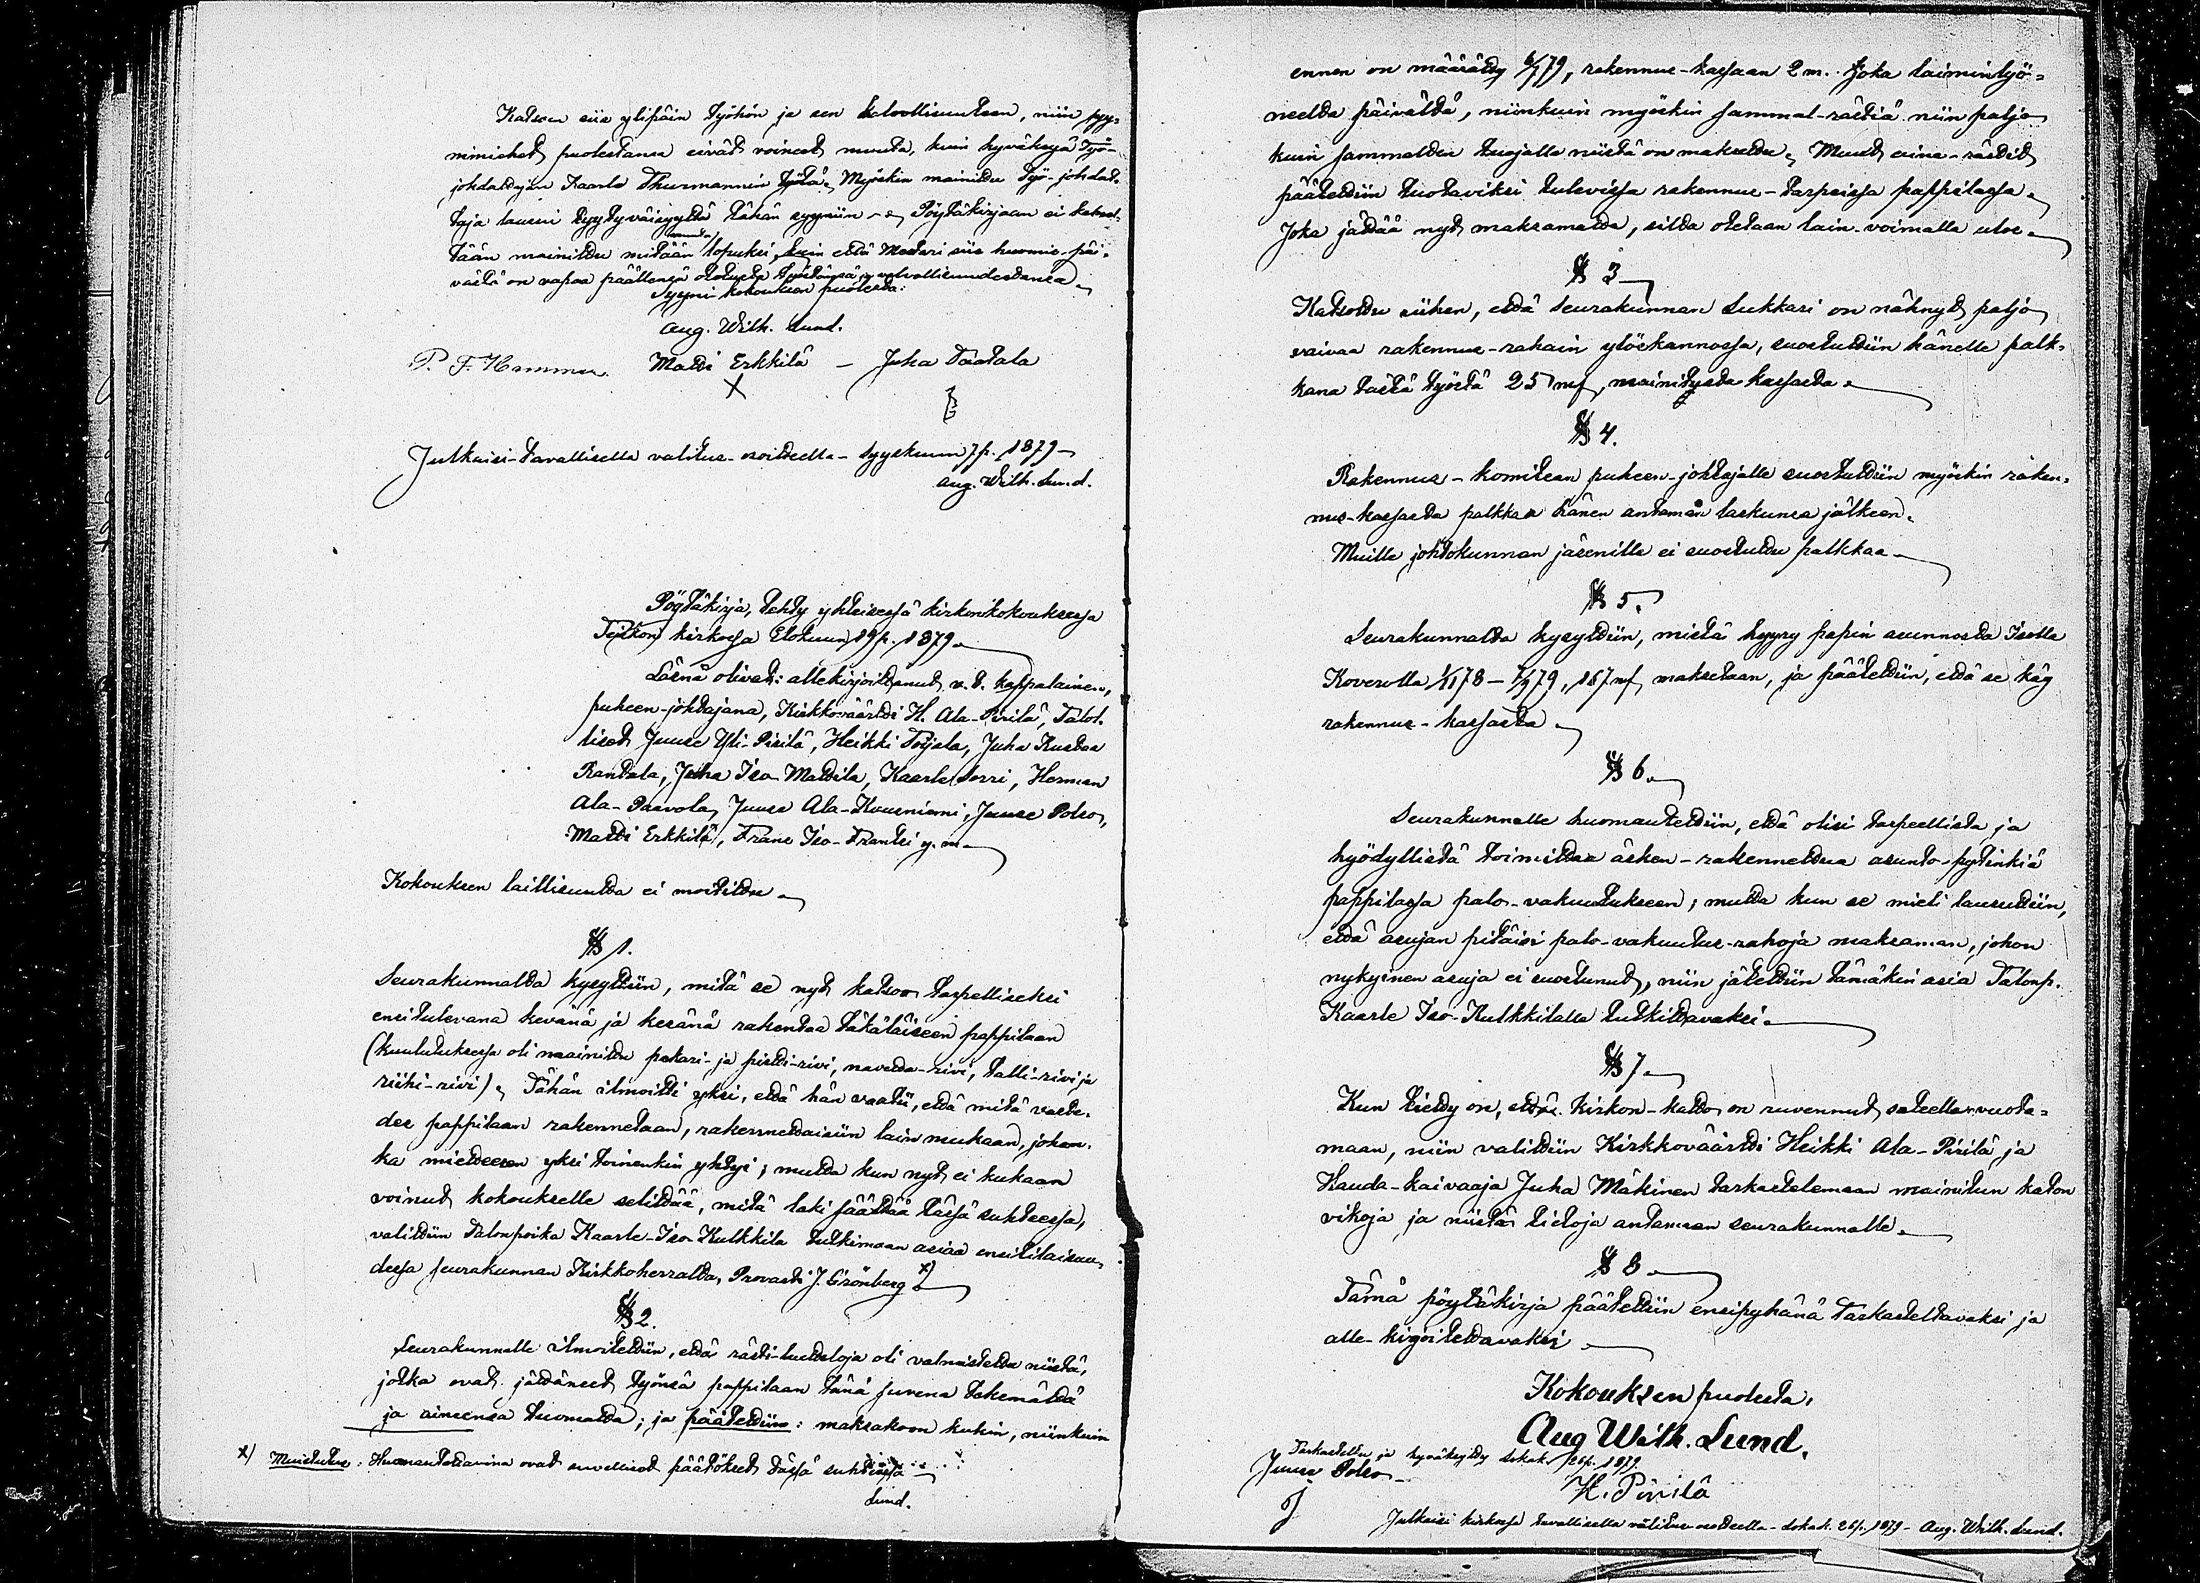 Katsoen siis ylipäin työhön ja sen kelvollisuuteen, niin syy-
nimiehet puolestansa eivät voineet muuta, kuin hyväksyä Työ-
johdattajan Kaarlo Thurmannin työtä. Myöskin mainittu Työ-johdat-
taja lausui tyytyväisyyttä tähän syyniin. Pöytäkirjaan ei katsot-
tään mainittu mitään muuta lopuksi, kuin että Mestari siis huomis-päi-
västä on vapaa päällensä otetusta työstänsä ja velvollisuudestansa
Syyni kokouksen puolesta:
Aug. Wilh. Lund.
P. F. Hammar. Matti Erkkilä – Juha Taatala
X
Julkaisi tavallisella valitus-osoitteella – Syyskuun 7 p. 1879 –
Aug. Wilh. Lund.
Pöytäkirja, tehty yhteisessä kirkonkokouksessa
kirkossa Elokuun 19 p. 1879.
Läsnä olivat: allekirjoittanut v. t. kappalainen,
puheen-johtajana, Kirkkoväärti H. Ala-Pirilä, Talol-
liset Juuse Yli-Pirilä, Heikki Poijala, Juha Kustaa
Rantala, Juha Iso-Mattila, Kaarle Sorri, Herman
Ala-Paavola, Juuse Ala-Kuusniemi, Juuse Polso,
Matti Erkkilä, Frans Iso-Frantsi y. m.
Kokouksen laillisuutta ei moitittu
§ 1.
Seurakunnalta kysyttiin, mitä se nyt katsoo tarpelliseksi
ensitulevana kevänä ja kesänä rakentaa täkäläiseen pappilaan
(kuulutuksessa oli mainittu pakari- ja pirtti-rivi, navetta-rivi, talli-rivi ja
riihi-rivi). Tähän ilmoitti yksi, että hän vaatii, että mitä vaste-
des pappilaan rakennetaan, rakennettaisiin lain mukaan, johon-
ka mielteesen yksi toinenkin yhtyi; mutta kun nyt ei kukaan
voinut kokoukselle selittää, mitä laki säätää tässä suhteessa,
valittiin Talonpoika Kaarle Iso-Kulkkila tutkimaan asiaa ensitilaisuu-
dessa seurakunnan Kirkkoherralta, Provasti J. Grönberg x)
§ 2.
Seurakunnalle ilmoitettiin, että rästi-luetteloja oli valmistettu niistä,
jotka ovat jättäneet työnsä pappilaan tänä suvena tekemättä
ja aineensa tuomatta; ja päätettiin: maksakoon kukin, niinkuin
x) Muistutus: Huomautettavina ovat muelliset päätökset tässä suhteessa
Lund.
ennen on määrätty 6/7 79, rakennus-kassaan 2 m. joka laiminlyö-
neeltä päivältä, niinkuin myöskin sammal-rästiä niin paljo
kuin sammalten tuojalle niistä on maksettu. Muut aine-rästit
päätettiin tuotaviksi tulevissa rakennus-tarpeissa pappilassa.
Joka jättää nyt maksamatta, siltä otetaan lain-voimalla ulos.
§ 3
Katsottu siihen, että seurakunnan Lukkari on nähnyt paljo
vaivaa rakennus-rahain ylöskannossa, suostuttiin hänelle palk-
kana tästä työstä 25 mk, mainitusta kassasta.
§ 4.
Rakennus-komitean puheen-johtajalle suostuttiin myöskin raken-
nus-kassasta palkkaa hänen antaman laskunsa jälkeen.
Muille johtokunnan jäsenille ei suostuttu palkkaa
§ 5.
Seurakunnalta kysyttiin, mistä hyyry papin asunnosta Isolla
Koverolla 1/11 78 – 1/9 79, 167 mk, maksetaan, ja päätettiin, että se käy
rakennus-kassasta.
§ 6
Seurakunnalle huomautettiin, että olisi tarpeellista ja
hyödyllistä toimittaa äsken-rakennettua asunto-pytinkiä
pappilassa palo-vakuutukseen; mutta kun se mieli lausuttiin,
että asujan pitäisi palo-vakuutus-rahoja maksaman, johon
nykyinen asuja ei suostunut, niin jätettiin tämäkin asia Talonp.
Kaarle Iso-Kulkkilalle tutkittavaksi.
§ 7
Kun tietty on, että Kirkon-katto on ruvennut sateella vuota-
maan, niin valittiin Kirkkoväärti Heikki Ala-Pirilä ja
Hauda-kaivaaja Juha Mäkinen tarkastelemaan mainitun katon
vikoja ja niistä tietoja antamaan seurakunnalle.
§ 8
Tämä pöytäkirja päätettiin ensipyhänä Tarkastettavaksi ja
alle-kirjoitettavaksi
Kokouksen puolesta,
Aug Wilh. Lund.
Tarkastettu ja hyväksytty Lokak. 26 p. 1879.
Juuse Polso
H. Pirilä
Julkaisi kirkossa tavallisella valitus-osoitteella – Lokak. 26 p. 1879 – Aug. Wilh. Lund.